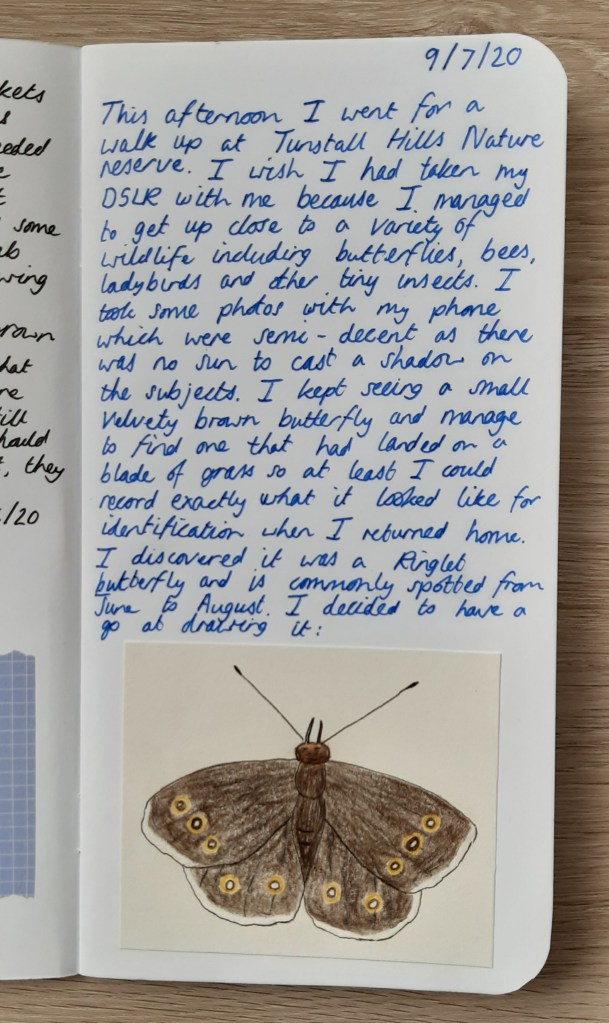 kets
s
eeded
e
t
some
ab
wing
rown
hat
re
till
hould
t, they
/20
9/7/20
This afternoon I went for a
walk up at Tunstall Hills Nature
reserve. I wish I had taken my
DSLR with me because I managed
to get up close to a variety of
wildlife including butterflies, bees,
ladybirds and other tiny insects. I
took some photos with my phone
which were semi-decent as there
was no sun to cast a shadow on
the subjects. I kept seeing a small
velvety brown butterfly and manage
to find one that had landed on a
blade of grass so at least I could
record exactly what it looked like for
identification when I returned home.
I discovered it was a Ringlet
butterfly and is commonly spotted from
June to August. I decided to have a
go at drawing it: